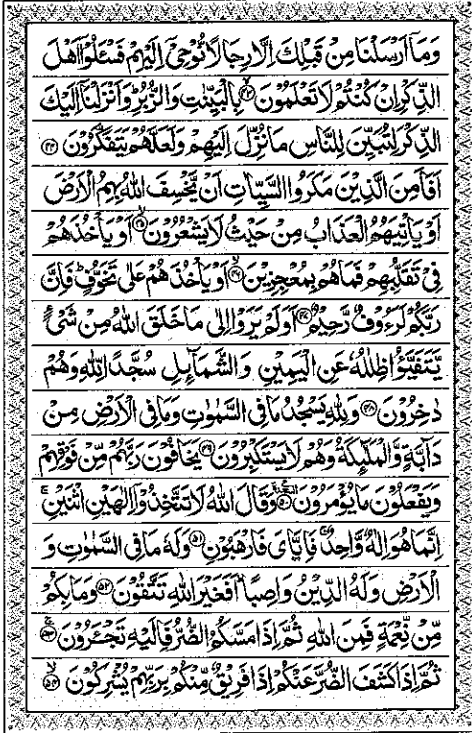 وَمَاۤ اَرْسَلْنَا مِنْ قَبْلِكَ اِلَّا رِجَالًا نُّوْحِیْۤ اِلَیْهِمْ فَسْـَٔلُوْۤا اَهْلَ
الذِّكْرِ اِنْ كُنْتُمْ لَا تَعْلَمُوْنَ ﴿۴۳﴾ بِالْبَیِّنٰتِ وَالزُّبُرِ وَاَنْزَلْنَاۤ اِلَیْكَ
الذِّكْرَ لِتُبَیِّنَ لِلنَّاسِ مَا نُزِّلَ اِلَیْهِمْ وَلَعَلَّهُمْ یَتَفَكَّرُوْنَ ﴿۴۴﴾
اَفَاَمِنَ الَّذِیْنَ مَكَرُوا السَّیِّاٰتِ اَنْ یَّخْسِفَ اللّٰهُ بِهِمُ الْاَرْضَ
اَوْ یَاْتِیَهُمُ الْعَذَابُ مِنْ حَیْثُ لَا یَشْعُرُوْنَ ﴿۴۵﴾ اَوْ یَاْخُذَهُمْ
فِیْ تَقَلُّبِهِمْ فَمَا هُمْ بِمُعْجِزِیْنَ ﴿۴۶﴾ اَوْ یَاْخُذَهُمْ عَلٰی تَخَوُّفٍ فَاِنَّ
رَبَّكُمْ لَرَءُوْفٌ رَّحِیْمٌ ﴿۴۷﴾ اَوَلَمْ یَرَوْا اِلٰی مَا خَلَقَ اللّٰهُ مِنْ شَیْءٍ
یَّتَفَیَّؤُا ظِلٰلُهٗ عَنِ الْیَمِیْنِ وَالشَّمَآىِٕلِ سُجَّدًا لِّلّٰهِ وَهُمْ
دٰخِرُوْنَ ﴿۴۸﴾ وَلِلّٰهِ یَسْجُدُ مَا فِی السَّمٰوٰتِ وَمَا فِی الْاَرْضِ مِنْ
دَآبَّةٍ وَّالْمَلٰٓىِٕكَةُ وَهُمْ لَا یَسْتَكْبِرُوْنَ ﴿۴۹﴾ یَخَافُوْنَ رَبَّهُمْ مِّنْ فَوْقِهِمْ
وَیَفْعَلُوْنَ مَا یُؤْمَرُوْنَ ﴿۵۰﴾ وَقَالَ اللّٰهُ لَا تَتَّخِذُوْۤا اِلٰهَیْنِ اثْنَیْنِ
اِنَّمَا هُوَ اِلٰهٌ وَّاحِدٌ فَاِیَّایَ فَارْهَبُوْنِ ﴿۵۱﴾ وَلَهٗ مَا فِی السَّمٰوٰتِ وَ
الْاَرْضِ وَلَهُ الدِّیْنُ وَاصِبًا اَفَغَیْرَ اللّٰهِ تَتَّقُوْنَ ﴿۵۲﴾ وَمَا بِكُمْ
مِّنْ نِّعْمَةٍ فَمِنَ اللّٰهِ ثُمَّ اِذَا مَسَّكُمُ الضُّرُّ فَاِلَیْهِ تَجْـَٔرُوْنَ ﴿۵۳﴾
ثُمَّ اِذَا كَشَفَ الضُّرَّ عَنْكُمْ اِذَا فَرِیْقٌ مِّنْكُمْ بِرَبِّهِمْ یُشْرِكُوْنَ ﴿۵۴﴾